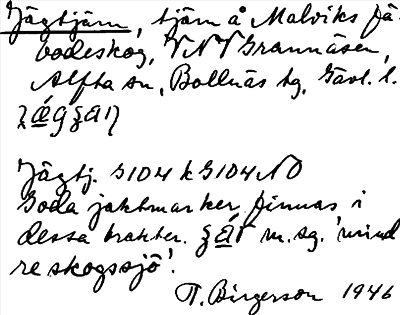 Jägtjärn, tjärn å Malviks fä-
bodeskog, VNV Grannäsen,
Alfta sn, Bollnäs tg, Gävl. l.
Jägtj. S104 k G104 NO
Goda jaktmarker finnas i
dessa trakter. m. sg. 'mind
re skogssjö'.
T. Birgerson 1946